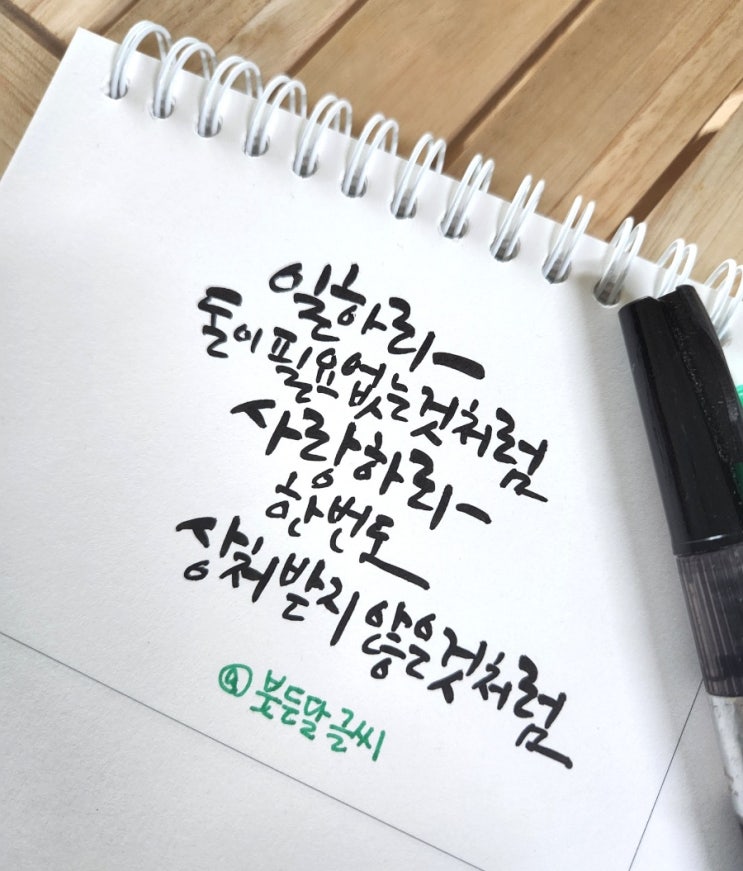 일하라
돈이 필요없는것처럼
사랑하라
한번도
상처받지 않은것처럼
@붓든달글씨